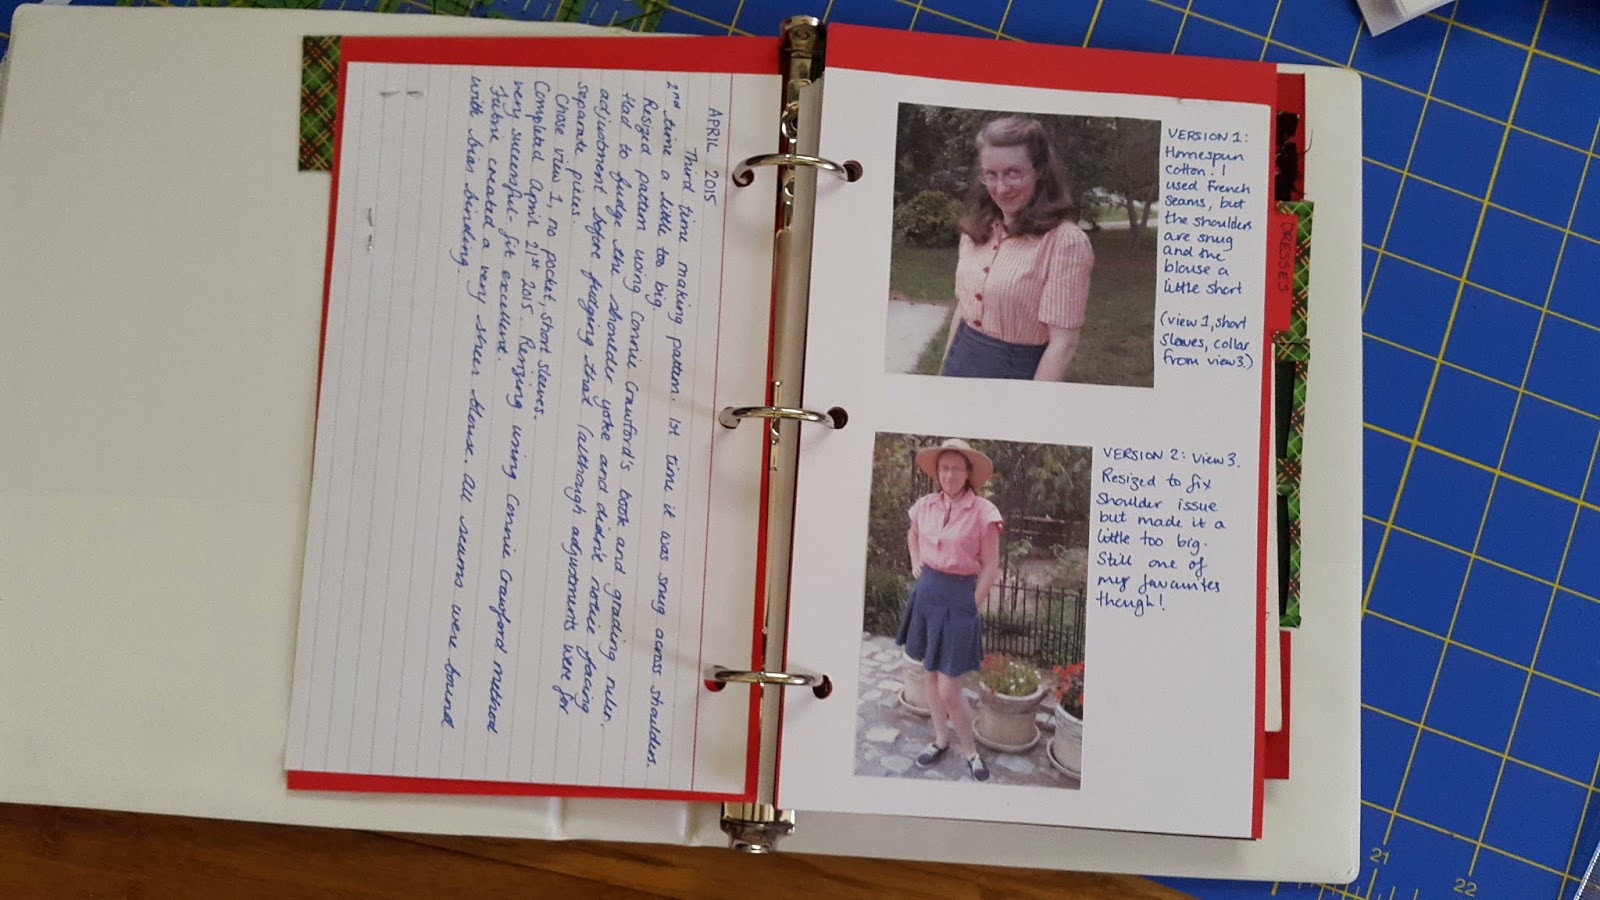 APRIL 2015
Third time making pattern. 1st time it was snug across shoulders.
2nd time a little too big.
Resized pattern using Connie Crawford's book and grading ruler.
Had to fudge the shoulder yoke and didn't notice facing
adjustment before fudging that (although adjustments were for
separate pieces.
Chose view 1, no pocket, short sleeves.
Completed April 21st 2015. Resizing using Connie Crawford method
very sucessful - fit excellent.
Fabric created a very sheer blouse. All seams were bound
with bias binding.
VERSION 1:
Homespun
cotton. I
used French
seams, but
the shoulders
are snug
and the
blouse a
little short
(view 1, short
sleeves, collar
from view 3.)
VERSION 2: View 3.
Resized to fix
shoulder issue
but made it a
little too big.
Still one of
my favourites
though!
DRESSES
21
22